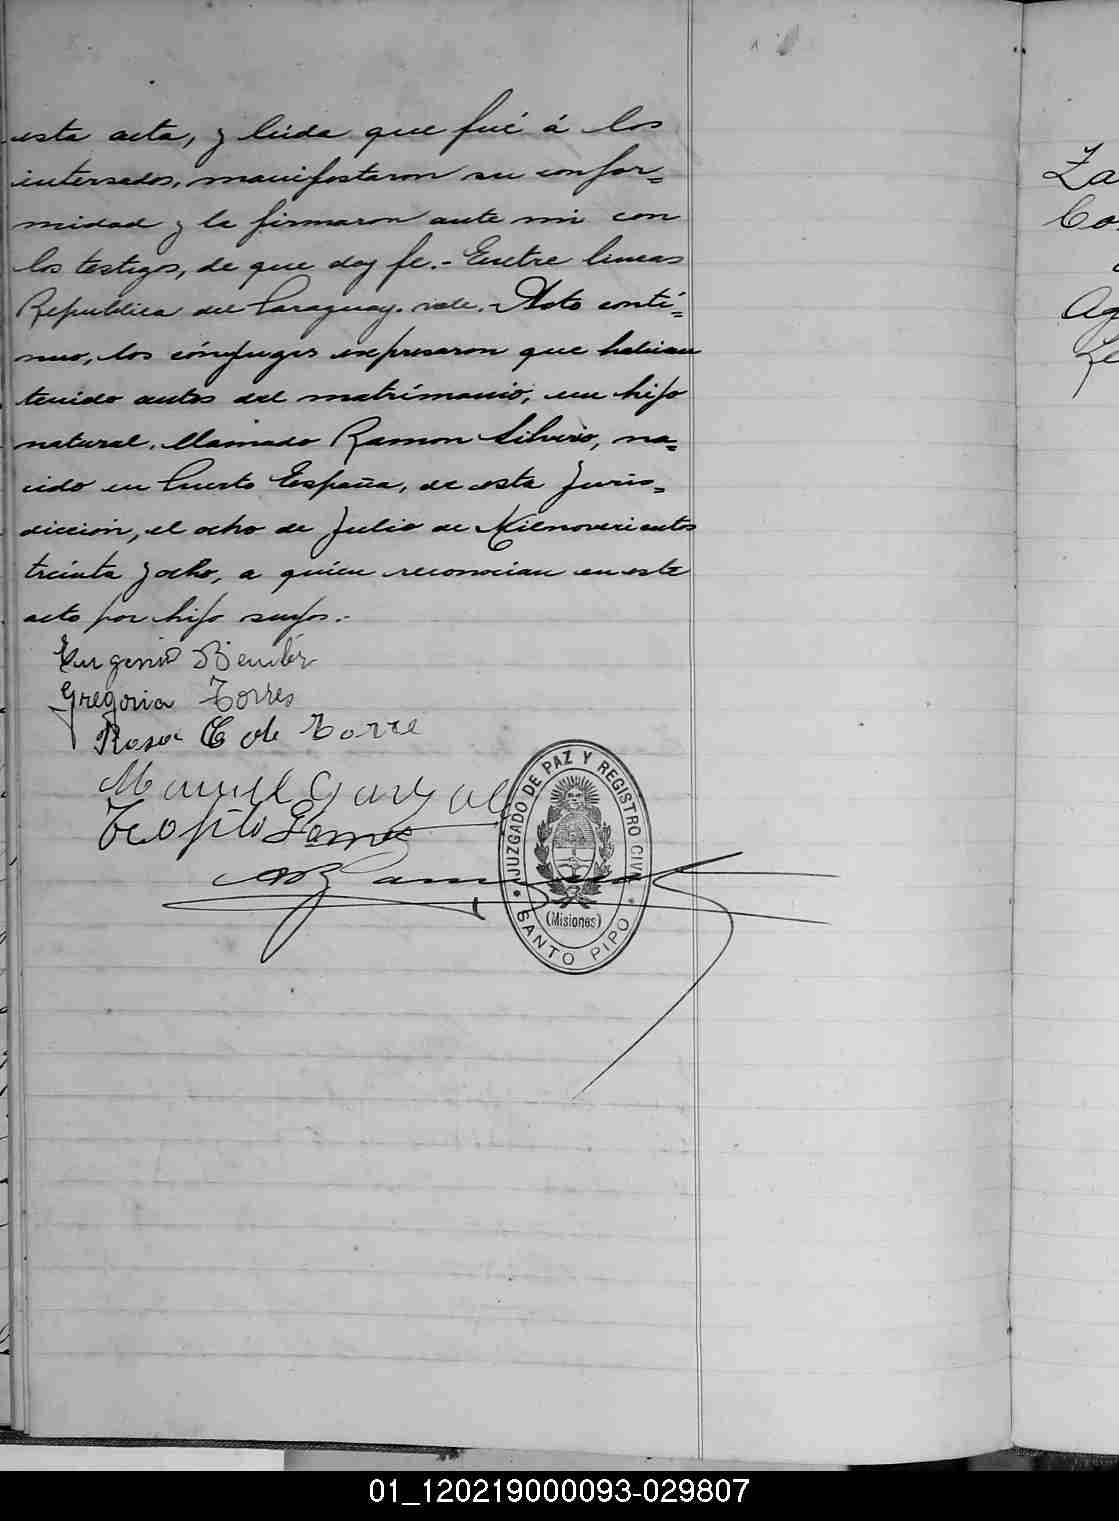 esta acta, y leída que fué á los
intersados, manifestaron su confor=
midad y la firmaron ante mi con
los testigos, de que doy fe.- Entre lineas
Republica del Paraguay. vale. Acto contí=
nuo, los cónyuges expresaron que habian
tenido antes del matrímonio, un hijo
natural, llamado Ramon Silverio, na=
cido en Puerto España, de esta Juris=
dicción, el ocho de Julio de Milnovecientos
treinta y ocho, a quien reconocian en este
acto por hijo suyo.-
Eugenio Benitez
Gregoria Torres
Rosa C de Torre
Manuel
Teofilo Gomes
JUZGADO DE PAZ Y REGISTRO CIVIL
(Misiones)
SANTO PIPO
Za
Co
Ag
Re
01_120219000093-029807